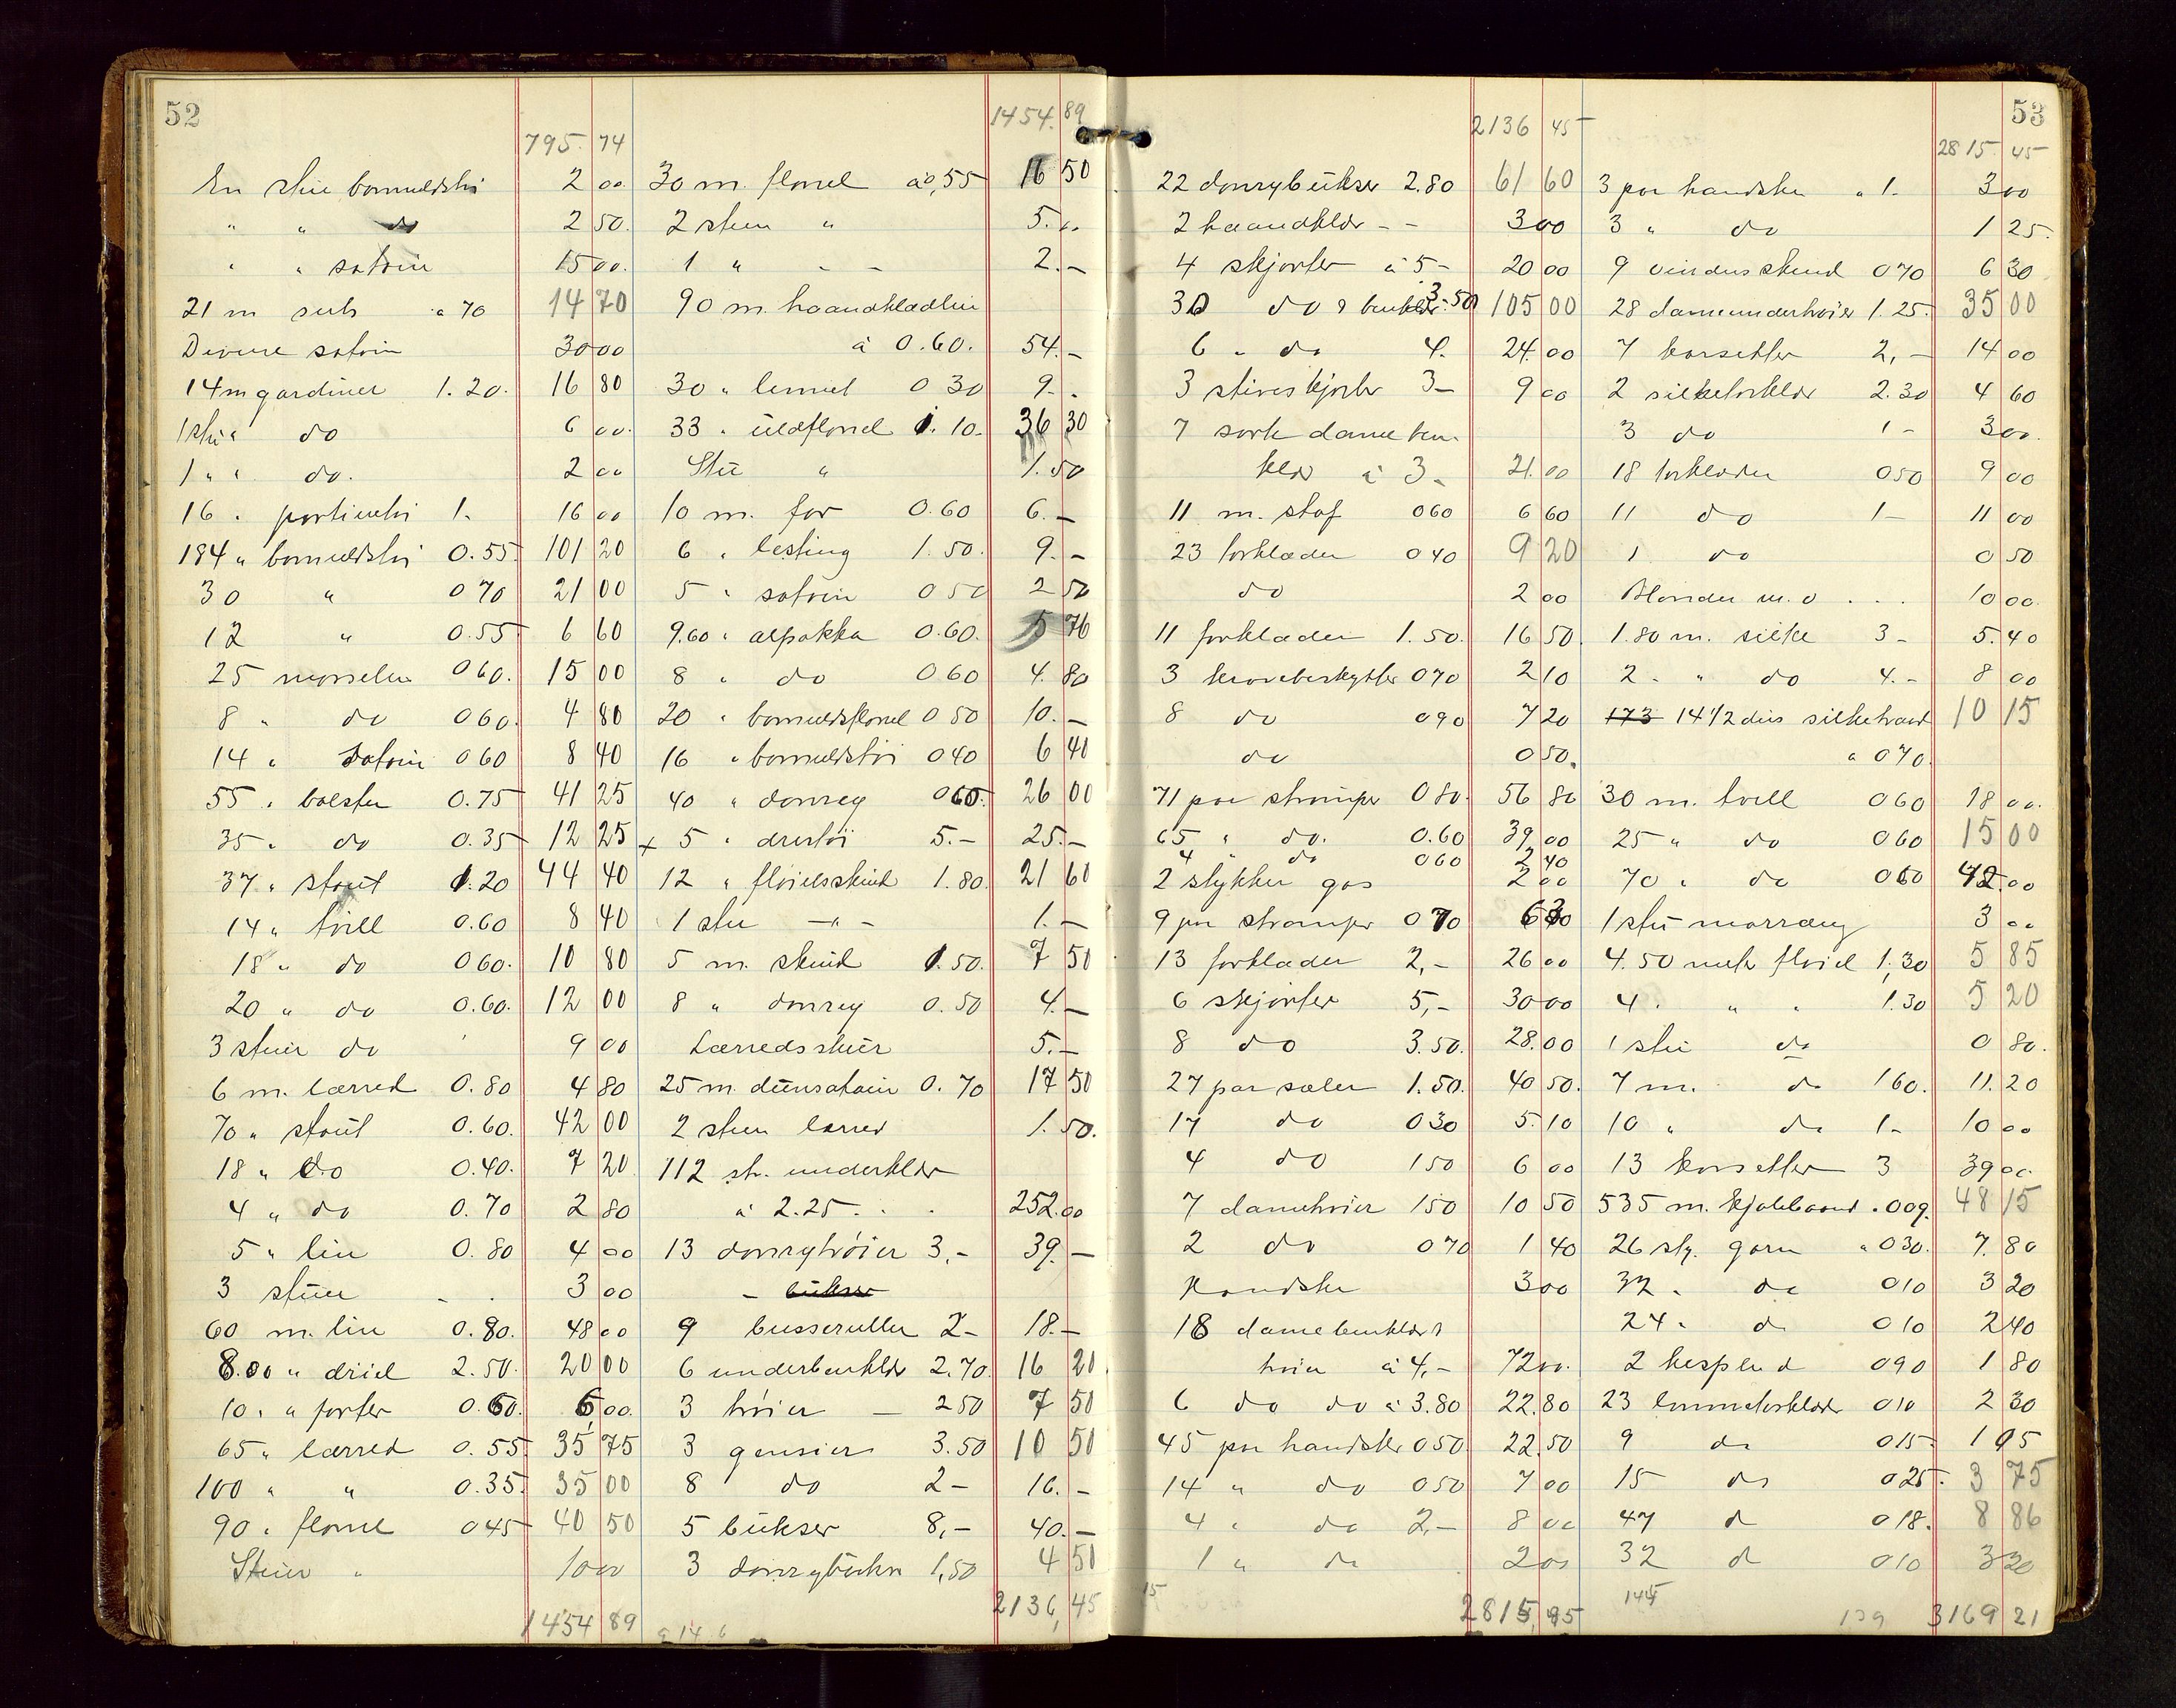 52
795. 74
En stu bomuldstøi 2 00.
" " do 2 50.
" " satoin 15 00.
21 m sirts a 70 14 70
Diverse satoin 30 00
14 m gardiner 1.20. 16 80
1 stu " do 6 00.
1 " " do. 2 00
16 " portiertøi 1. 16 00
184 " bomuldstøi 0.55 101 20
30 " 0 70 21 00
12 " 0.55 6 60
25 mosselin 0 60. 15 00
8 " do 0 60. 4 80
14 " Satoin 0 60 8 40
55 " bolster 0.75 41 25
35 " do 0.35 12 25
37 " stout 1.20 44 40
14 " tvill 0.60 8 40
18 " do 0 60. 10 80
20 " do 0.60. 12 00
3 stuer do 9 00
6 m. lærred 0.80 4 80
70 " stout 0.60. 42 00
18 " do 0.40. 7 20
4 " do 0.70 2 80
5 " lin 0.80 4 00
3 stuer - . 3 00
60 m. lin 0.80. 48 00
8.00 " driel 2.50. 20 00
10 " " forfer 0.60. 6 00.
65 " lærred 0.55 35 75
100 " " 0.35. 35 00
90 " flonel 0 45 40 50
Stuer " 10 00
1454 89
1454. 89
30 m. flonel a 0,55 16 50
2 stuer " 5. ..
1 " - - 2. -
90 m. haandklædlin
à 0.60. 54. -
30 " lerret 0 30 9. .
33 " uldflonel 1.10. 36 30
Stu " 1.50
10 m. for 0.60 6. -
6 " lesting 1.50. 9. -
5 " satoin 0 50 2 50
9.60 " alpakka 0.60. 5 76
8 " do 0 60 4.80
20 " bomuldsflonel 0 50 10. -
16 " bomuldstøi 0 40 6 40
40 " donrey 0 65. 26 00
+ 5 " drestøi 5. - 25. -
12 " fløielsskind 1.80. 21 60
1 stu - " - 1. -
5 m. skind 1.50. 7 50
8 " donrey 0.50 4. -
Lærredsstuer 5. -
25 m. dunsatoin 0.70 17 50
2 stuer lærred 1.50.
112 st. underklær
à 2.25 . . . 252.00
13 donrytrøier 3, - 39. -
- bukser
9 busseruller 2 - 18. -
6 underbenklær 2.70. 16 20
3 trøier - 2 50 7 50
3 gensier 3.50 10 50
8 do 2 - 16. -
5 bukser 8, - 40. -
3 donrybukser 1,50 4 50
2136, 45
53
2136 45
22 donrybukser 2.80 61 60
2 haandklær - - 3 00
4 skjorter à 5 - 20 00
30 do & benklær 3.50 105 00
6 " do 4. 24.00
3 stiveskjorter 3 - 9 00
7 sorte dameben-
klær à 3 - 21.00
11 m. stof 0 60 6 60
23 forklæder 0 40 9 20
do 2 00
11 forklæder 1.50. 16 50.
3 kravebeskytter 0 70 2 10
8 do 0 90 7 20
do 0 50.
71 par strømper 0 80. 56 80
65 " do. 0.60 39,00
4 " do 0 60 2 40
2 stykker gas 2 00
9 par strømper 0 70 6 30
13 forklæder 2, - 26 00
6 skjorter 5, - 30 00
8 do 3.50. 28.00
27 par sæler 1.50. 40 50.
17 do 0 30 5.10
4 do 1 50 6 00
7 dametrøier 1 50 10 50
2 do 0 70 1 40
Handsker 3 00
18 damebenklær &
trøier à 4, - 72 00.
6 do do à 3.80 22.80
45 par handsker 0 50 22.50
14 " do 0 50 7 00
4 " do 2, - 8 00
1 " do 2 00
15
2815, 45
2815. 45
3 par handsker " 1 - 3 00
3 " do 1 25.
9 vindusskind 0 70 6 30
28 dameundertrøier 1.25. 35 00
7 korsetter 2, - 14 00
2 silkeforklær 2.30 4 60
3 do 1 - 3 00.
18 forklæder 0 50 9 00
11 do 1 - 11 00
1 do 0 50
Blonder m. o . . . 10 00.
1.80 m. silke 3 - 5.40
2 " " do 4. - 8 00
173 14 1/2 dus silketraad 10 15
" 0 70.
30 m. tvill 0 60 18 00.
25 " do 0 60 15 00
70 " do 0 60 42.00
1 stu marræng 3 00
4.50 meter fløiel 1,30 5 85
4 " " " 1.30 5 20
1 stu do 0 80.
7 m. do 1 60. 11.20
10 " do 1 - 10 00
13 korsetter 3 39 00.
535 m. kjolebaand " 0 09. 48 15
26 sty. garn " 0 30. 7.80
32 " do 0 10 3 20
24 " do 0 10 2 40
2 hespler d 0 90 1 80
23 lommetørklær 0 10 2 30
9 do 0 15 1 05
15 do 0 25. 3 75
47 d 0 18. 8 86
32 d 0 10 3 20
145
139
3169 21